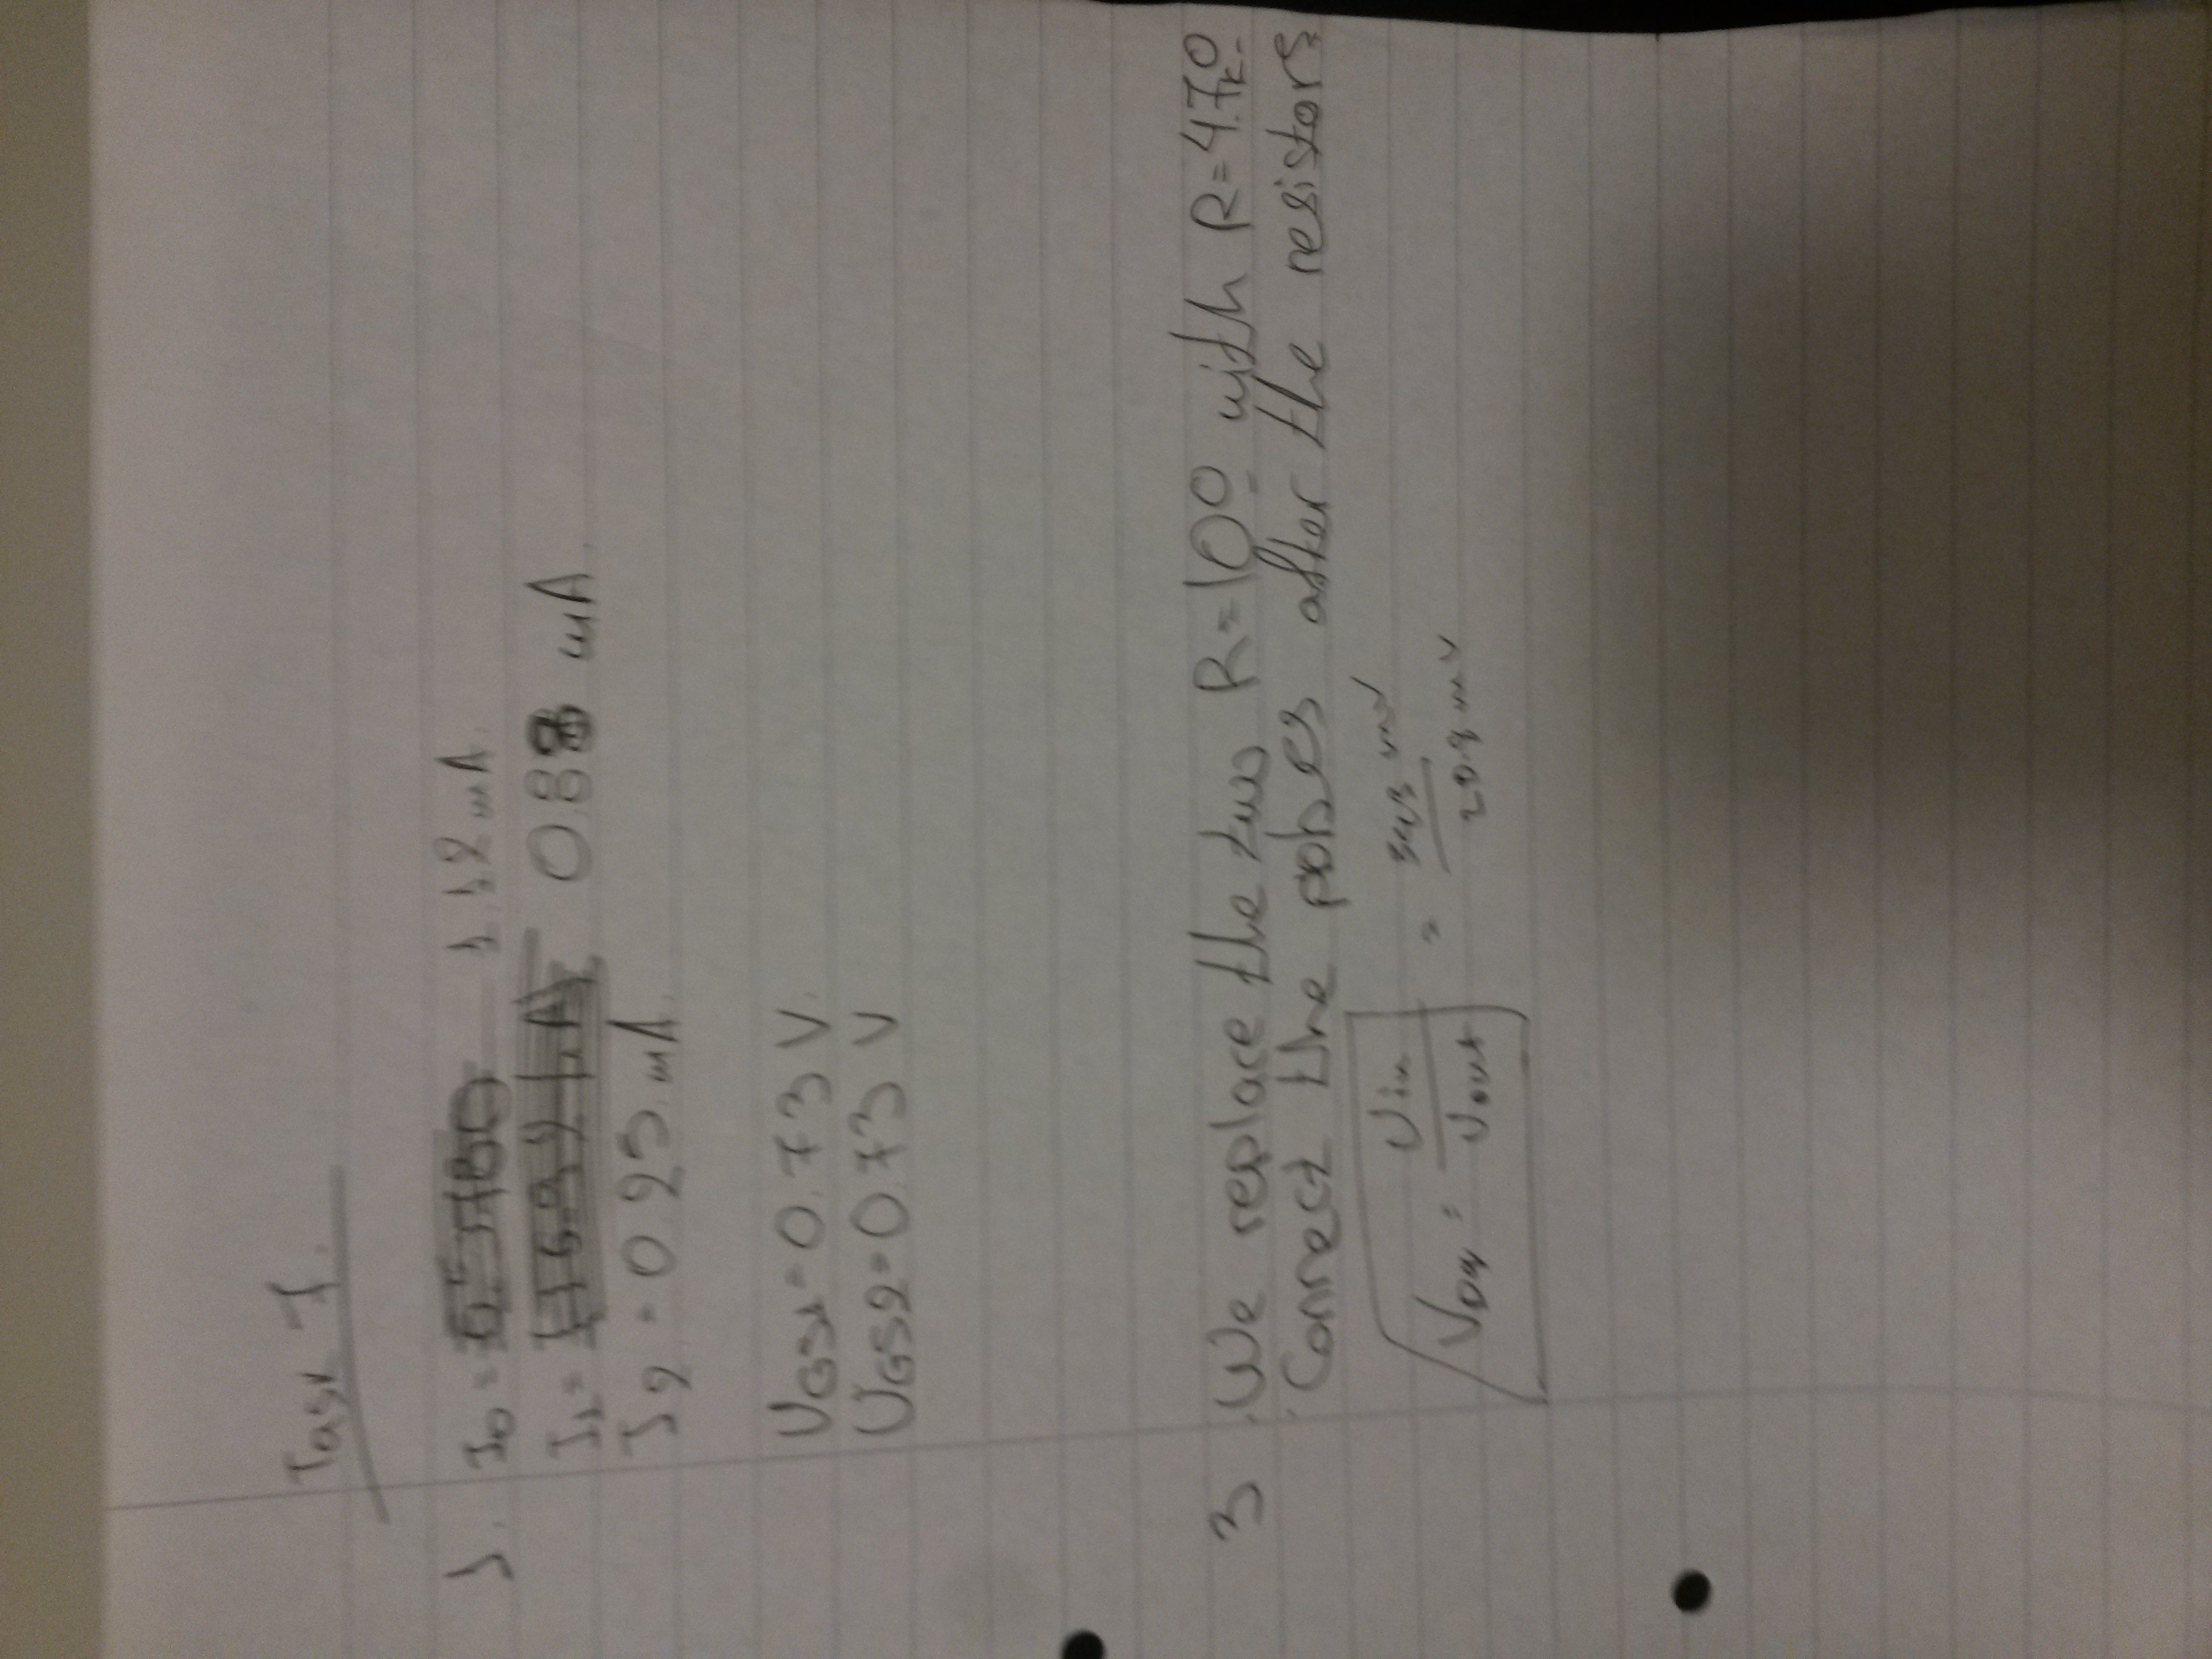 Task 7.
1. I0 = 1.12 mA.
I1 = 0.88 mA.
I2 = 0.25 mA.
UGS1 = 0.73 V.
UGS2 = 0.73 V
3. We replace the two R=10Ω with R=4.7kΩ
Connect the after the resistors
= Uin / Vout = 343 mV / 20.8 mV